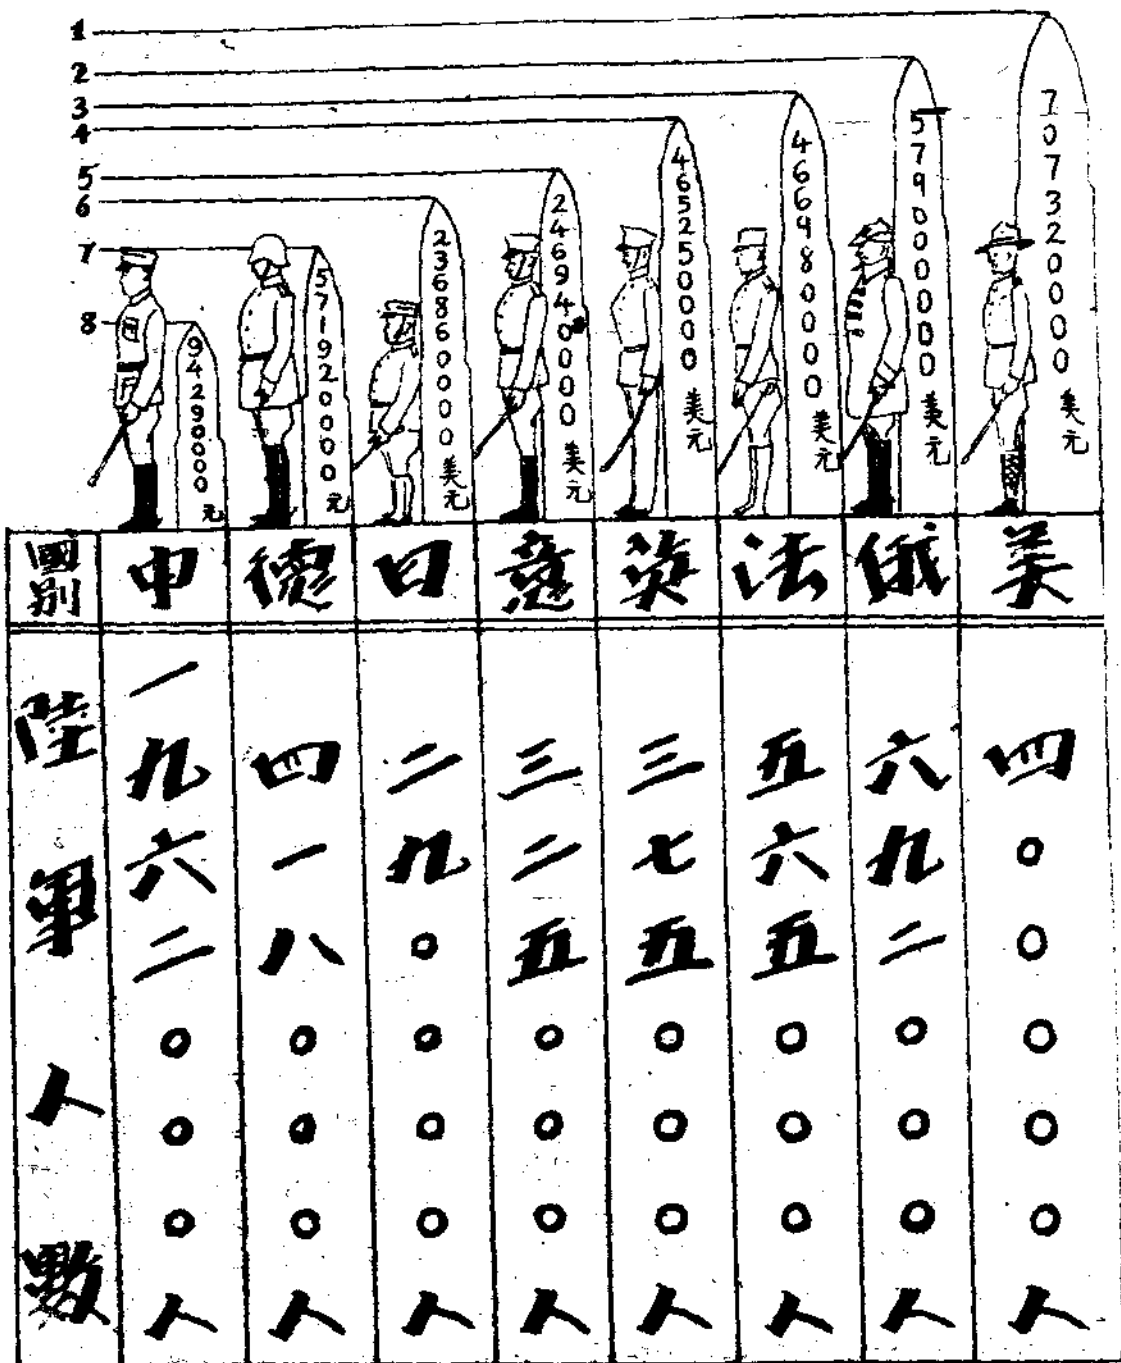 1
2
3
4
5
6
7
8
94290000元
571920000元
236860000美元
246940000美元
465250000美元
466980000美元
579000000美元
707320000美元
國別 中 德 日 意 英 法 俄 美
陸軍人數
一九六二〇〇〇人
四一八〇〇〇人
二九〇〇〇〇人
三二五〇〇〇人
三七五〇〇〇人
五六五〇〇〇人
六九二〇〇〇人
四〇〇〇〇〇人